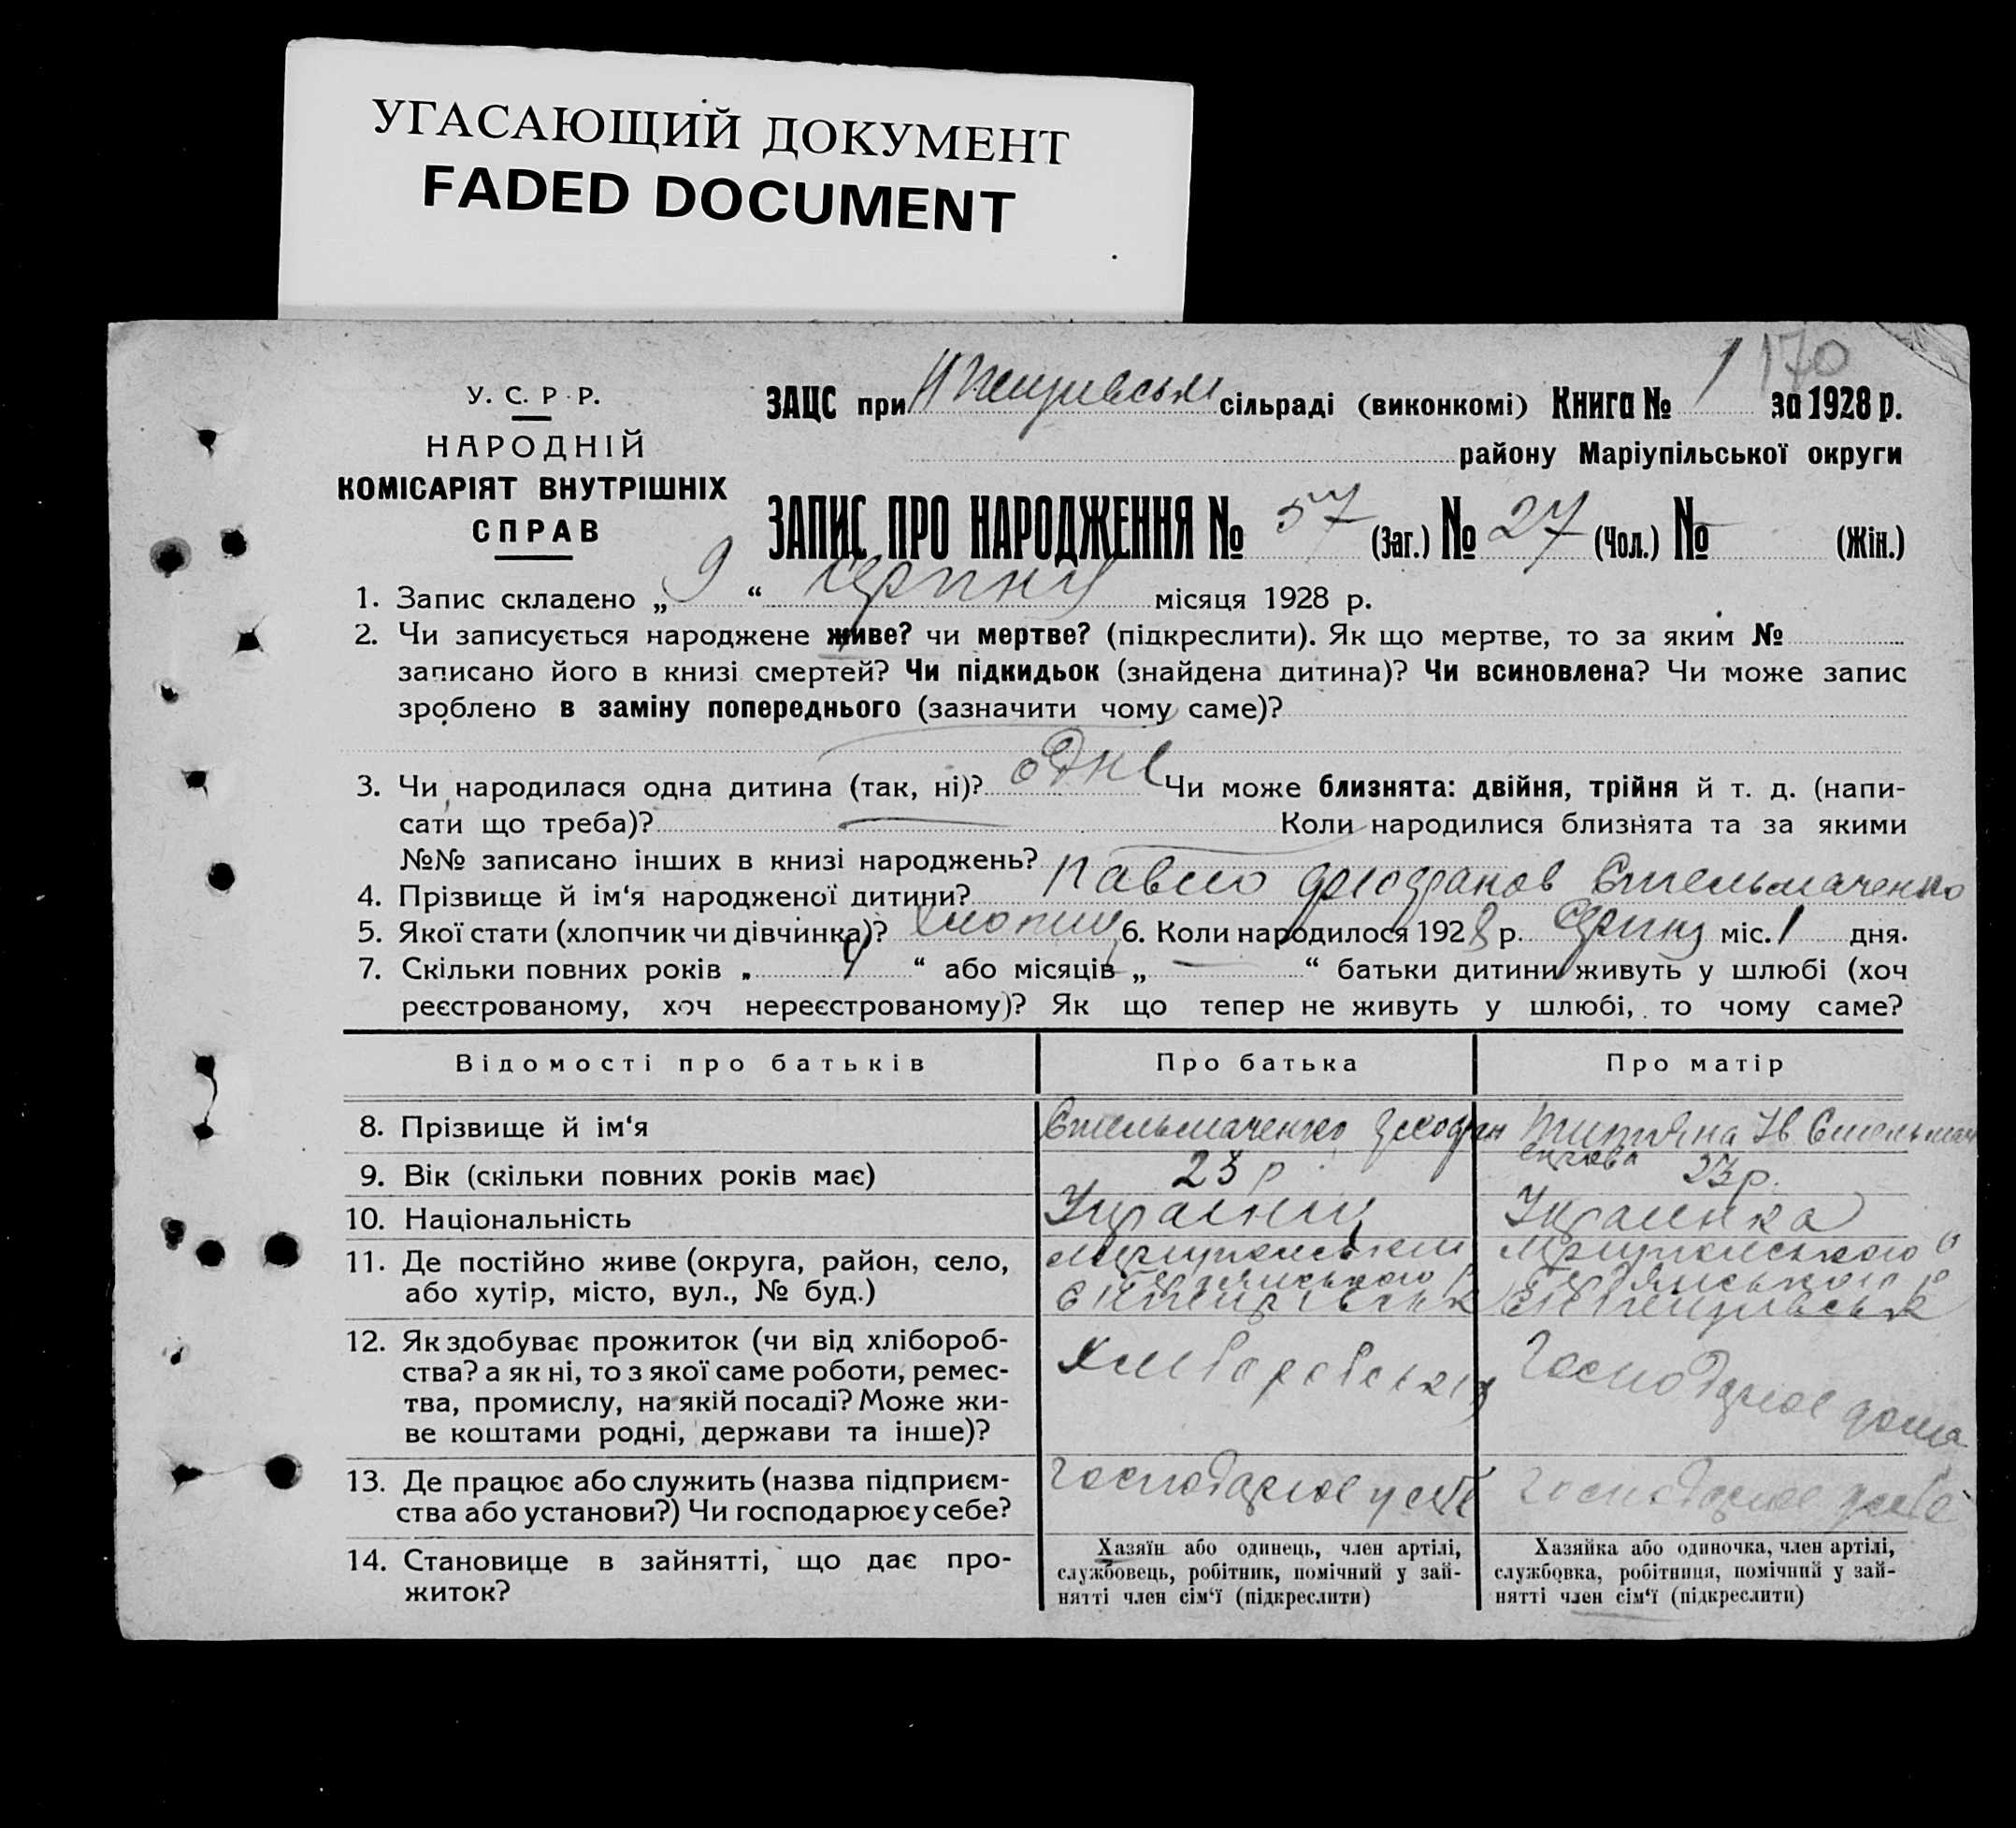 УГАСАЮЩИЙ ДОКУМЕНТ
FADED DOCUMENT
У. С. Р. Р.
НАРОДНІЙ
КОМІСАРІЯТ ВНУТРІШНІХ
СПРАВ
ЗАЦС при сільраді (виконкомі) Книга № 1 за 1928 р.
170
району Маріупільської округи
ЗАПИС ПРО НАРОДЖЕННЯ № 57 (Заг.) № 27 (Чол.) № (Жін.)
1. Запис складено „ 9 “ серпня місяця 1928 р.
2. Чи записується народжене живе? чи мертве? (підкреслити). Як що мертве, то за яким №
записано його в книзі смертей? Чи підкидьок (знайдена дитина)? Чи всиновлена? Чи може запис
зроблено в заміну попереднього (зазначити чому саме)?
3. Чи народилася одна дитина (так, ні)? одне Чи може близнята: двійня, трійня й т. д. (напи-
сати що треба)? Коли народилися близнята та за якими
№№ записано інших в книзі народжень?
4. Прізвище й ім‘я народженої дитини? Павло Стельмаченко
5. Якої стати (хлопчик чи дівчинка)? 6. Коли народилося 1928 р. серпня міс. 1 дня.
7. Скільки повних років „ 4 “ або місяців „ — “ батьки дитини живуть у шлюбі (хоч
реєстрованому, хоч нереєстрованому)? Як що тепер не живуть у шлюбі, то чому саме?
Відомості про батьків Про батька Про матір
8. Прізвище й ім‘я Стельмаченко
9. Вік (скільки повних років має) 23 р 23 р.
10. Національність Украинец Украинка
11. Де постійно живе (округа, район, село,
або хутір, місто, вул., № буд.)
12. Як здобуває прожиток (чи від хлібороб-
ства? а як ні, то з якої саме роботи, ремес-
тва, промислу, на якій посаді? Може жи-
ве коштами родні, держави та інше)?
Господарює дома
13. Де працює або служить (назва підприєм-
ства або установи?) Чи господарює у себе?
Господарює у себе Господарює у себе
14. Становище в зайнятті, що дає про-
житок?
Хазяїн або одинець, член артілі,
службовець, робітник, помічний у зай-
нятті член сім‘ї (підкреслити)
Хазяйка або одиночка, член артілі,
службовка, робітниця, помічний у зай-
нятті член сім‘ї (підкреслити)